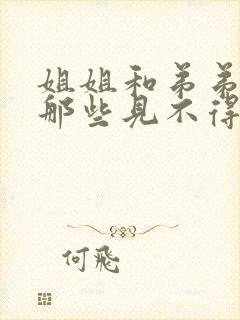 姐姐和弟弟
那些见不得
何飛